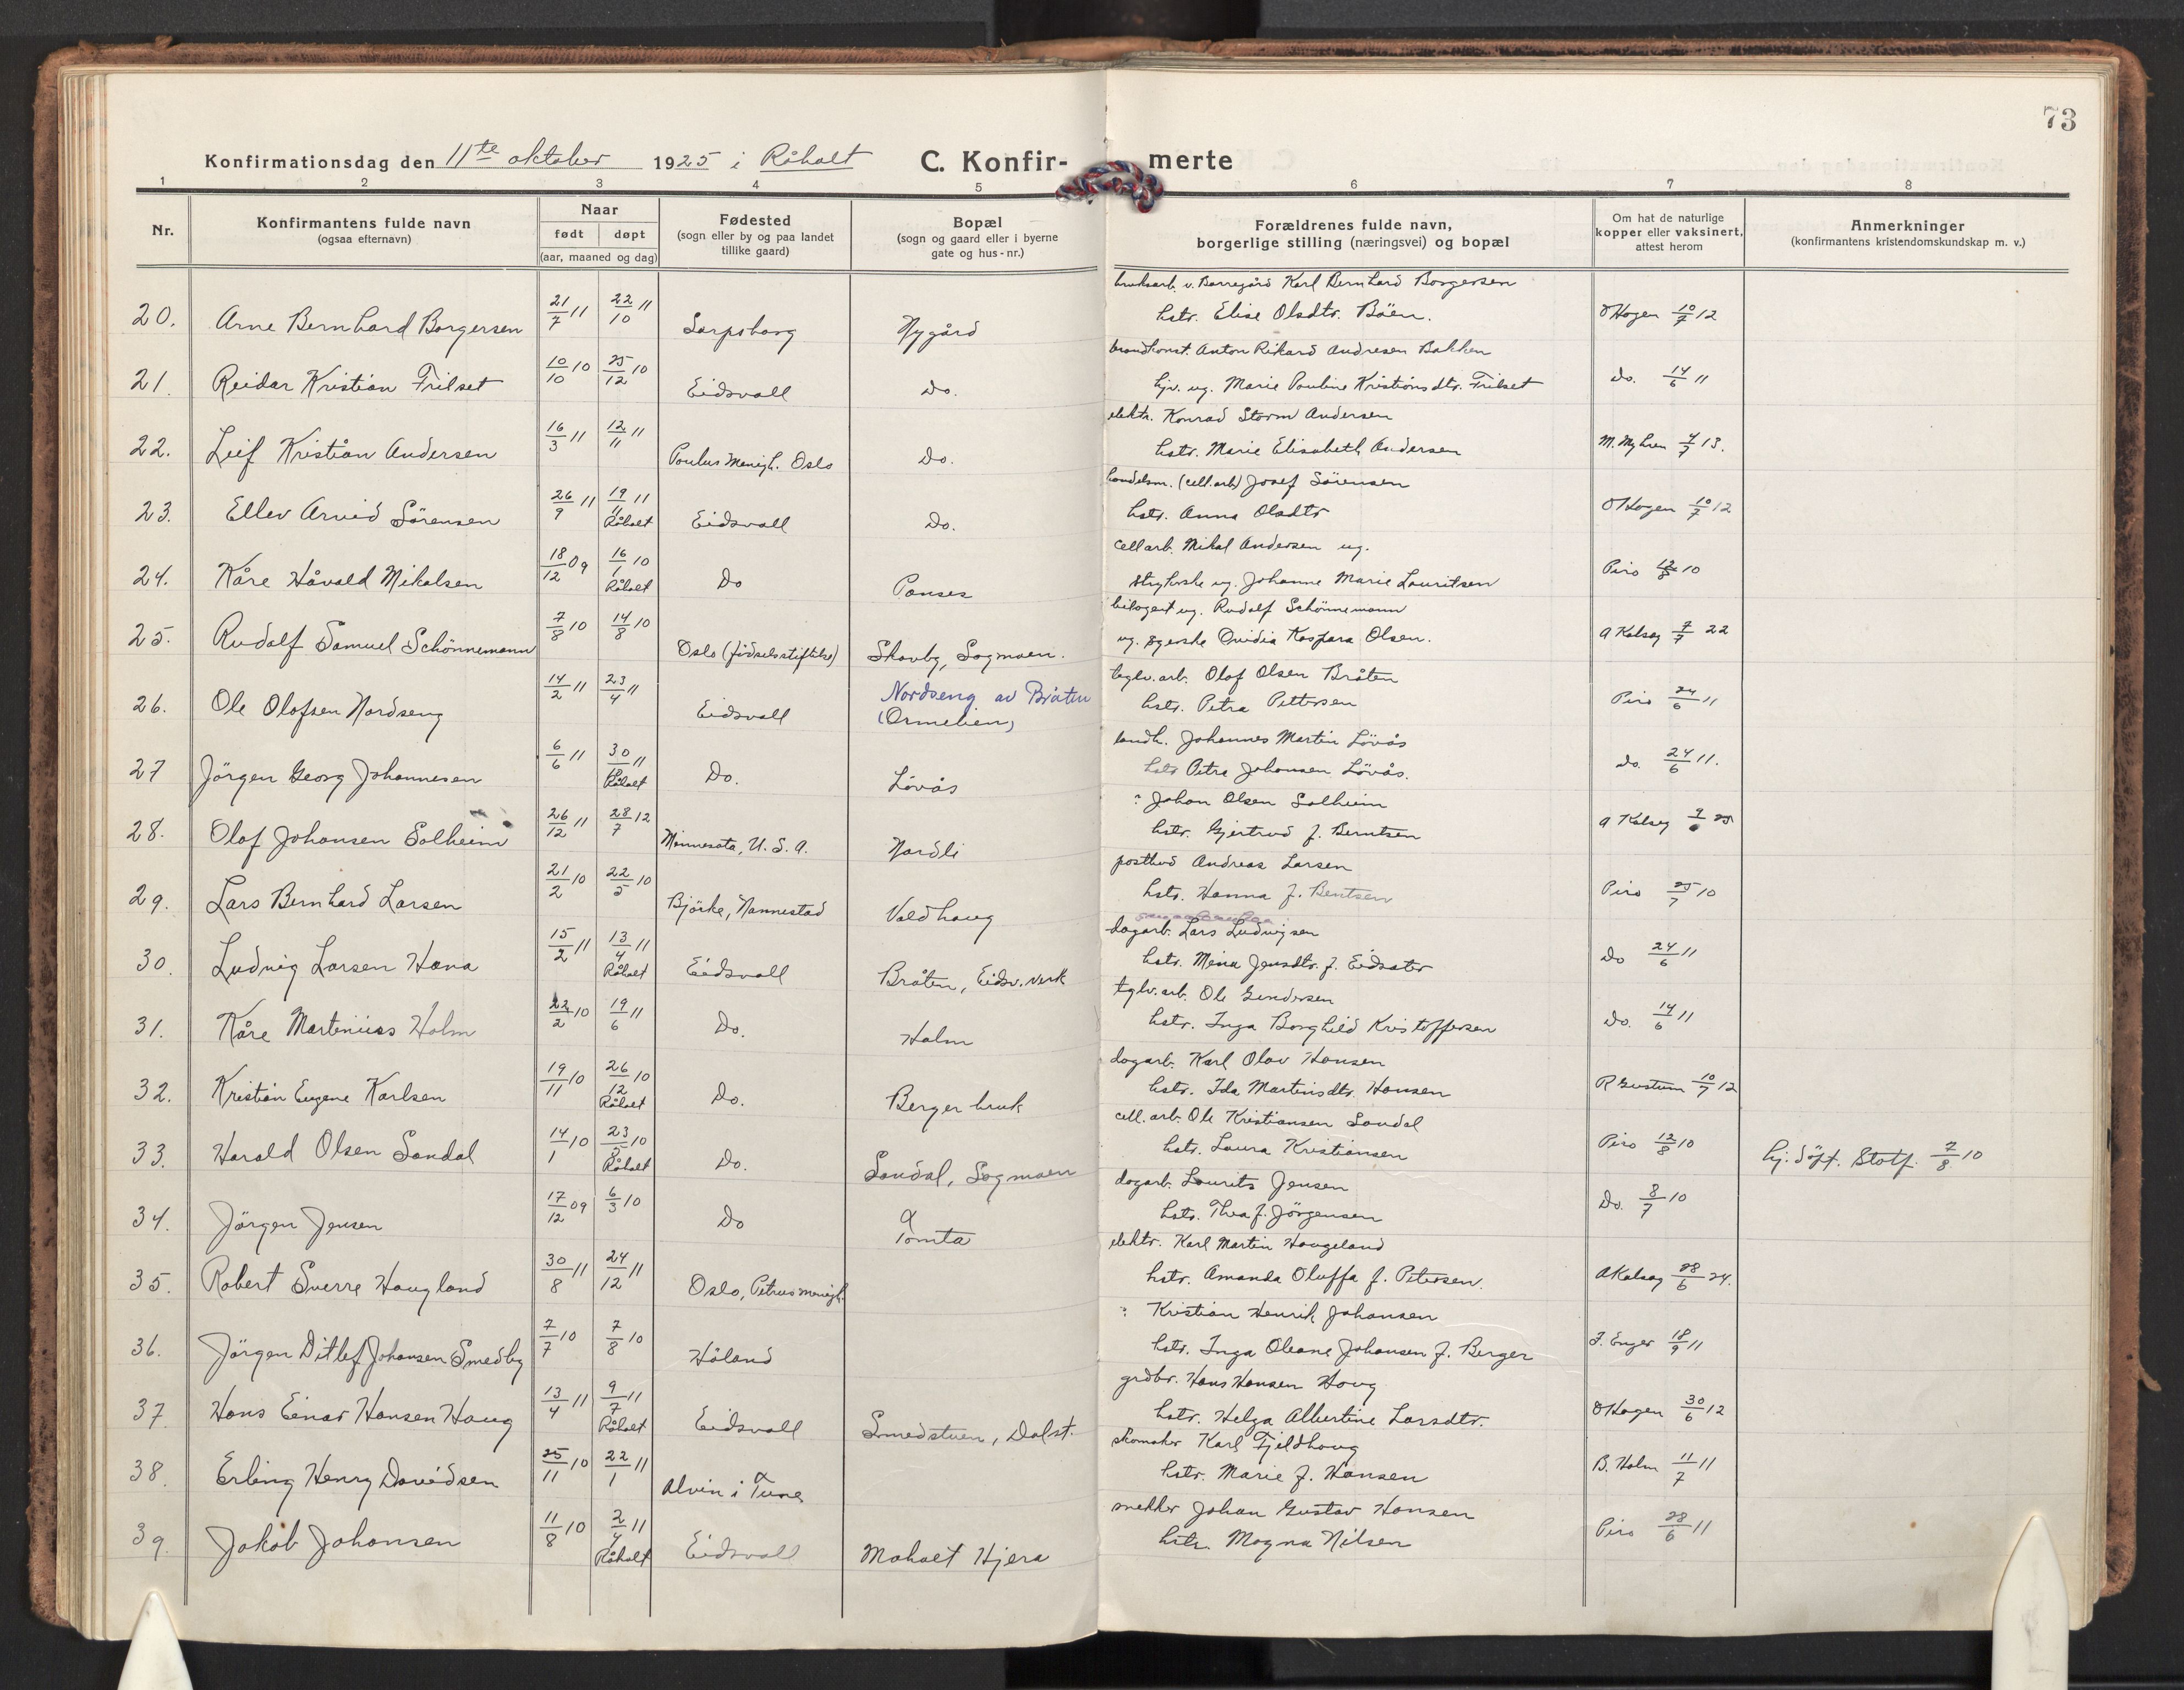 73
Konfirmationsdag den 11te oktober 1925 i Råholt C. Konfir- merte
1 2 3 4 5 6 7 8
Nr. Konfirmantens fulde navn (ogsaa efternavn) Naar født døpt (aar, maaned og dag) Fødested (sogn eller by og paa landet tillike gaard) Bopæl (sogn og gaard eller i byerne gate og hus-nr.) Forældrenes fulde navn, borgerlige stilling (næringsvei) og bopæl Om hat de naturlige kopper eller vaksinert, attest herom Anmerkninger (konfirmantens kristendomskundskap m. v.)
bruksarb. v. Borregård Karl Bernhard Borgersen
20. Arne Bernhard Borgersen 21/7 11 22/10 11 Sarpsborg Nygård hstr. Elise Olsdtr. Böen. O Hagen 10/7 12
brandkonst. Anton Rikard Andresen Bakken
21. Reidar Kristian Frilset 10/10 10 25/12 10 Eidsvall Do. hjv. ug. Marie Pauline Kristiansdtr. Frilset Do. 14/6 11
elektr. Konrad Storm Andersen
22. Leif Kristian Andersen 16/3 11 12/11 11 Paulus Menigh. Oslo Do. hstr. Marie Elisabeth Andersen M. Myhren 4/7 13.
handelsm. (cell.arb) Josef Sörensen
23. Ellev Arvid Sörensen 26/9 11 19/11 11 Råholt Eidsvall Do. hstr. Anna Olsdtr O Hagen 10/7 12
cellarb. Mikal Andersen ug.
24. Kåre Håvald Mikalsen 18/12 09 16/1 10 Råholt Do Panses strykerske ug. Johanne Marie Lauritsen Piro 12/8 10
ug. Rudolf Schönnemann
25. Rudolf Samuel Schönnemann 7/8 10 14/8 10 Oslo (födselsstiftelse) Skovby, Sagmoen. ug. syerske Ovidia Kaspara Olsen. A Kalsey 7/7 22
teglv. arb. Olaf Olsen Bråten
26. Ole Olafsen Nordseng 14/2 11 23/4 11 Eidsvall Nordseng av Bråten (Ormelien) hstr. Petra Pettersen Piro 24/6 11
landh. Johannes Martin Lövås
27 Jörgen Georg Johannesen 6/6 11 30/7 11 Råholt Do. Lövås hstr Petra Johansen Lövås. do. 24/6 11.
: Johan Olsen Solheim
28. Olaf Johansen Solheim 26/12 11 28/7 12 Minnesota, U. S. A. Nordli hstr. Gjertrud f. Berntsen A Kalsey 25
postbud Andreas Larsen
29. Lars Bernhard Larsen 21/2 10 22/5 10 Björke, Nannestad Valdhaug hstr. Hanna f. Bentsen Piro 25/7 10
dagarb. Lars Ludvigsen
30. Ludvig Larsen Hana 15/2 11 13/4 11 Råholt Eidsvall Bråten, Eidsv. verk hstr. Mina Jensdtr. f. Eidsater Do 24/6 11
tglv. arb. Ole Gundersen
31. Kåre Martinius Holm 22/2 10 19/6 11 Do. Holm hstr. Inga Borghild Kristoffersen Do. 14/6 11
dagarb. Karl Olav Hansen
32. Kristian Eugene Karlsen 19/11 10 26/12 10 Råholt Do. Berger bruk hstr. Ida Martinsdtr. Hansen R Gustum 10/7 12
cell. arb. Ole Kristiansen Sandal
33. Harald Olsen Sandal 14/1 10 23/5 10 Råholt Do. Sandal, Sagmoen hstr. Laura Kristiansen Piro 12/8 10 hj. döpt. Statf. 7/8 10
dagarb. Laurits Jensen
34. Jörgen Jensen 17/12 09 6/3 10 Do Tomta hstr. Thea f. Jörgensen Do. 8/7 10
elektr. Karl Martin Haugeland
35. Robert Sverre Haugland 30/8 11 24/12 11 Oslo, Petrus menigh. hstr. Amanda Oluffa f. Petersen. A Kalsey 28/6 24.
: Kristian Henrik Johansen
36. Jörgen Ditlef Johansen Smedby 7/7 10 7/8 10 Höland hstr. Inga Oleane Johansen f. Berger F. Enger 18/9 11
grdbr. Hans Hansen Haug
37. Hans Einar Hansen Haug 13/4 11 9/7 11 Råholt Eidsvall Smedstuen, Dalst. hstr. Helga Albertine Larsdtr. O Hagen 30/6 12
skomaker Karl Fjeldhaug
38. Erling Henry Davidsen 25/11 10 22/1 11 Alvin i Tune hstr. Marie f. Hansen B. Holm 11/7 11
snekker Johan Gustav Hansen
39. Jakob Johansen 11/8 10 2/4 11 Råholt Eidsvall Moholt Hjera hstr. Magna Nilsen Piro 28/6 11